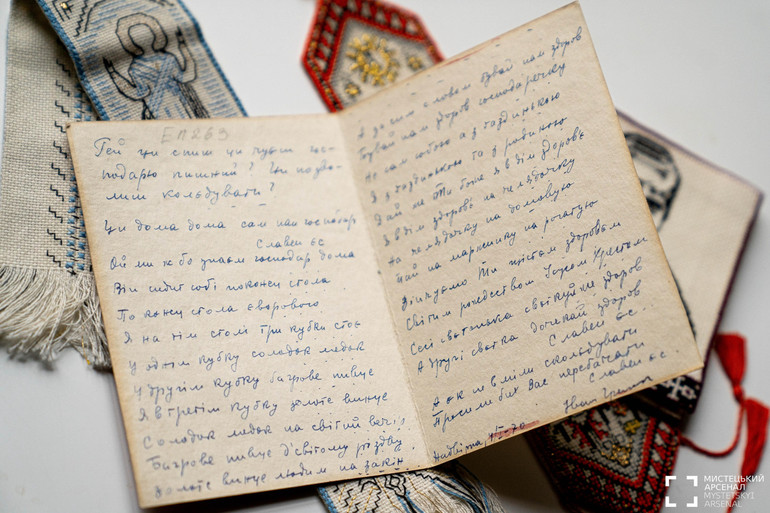 ЕП 269
Гей чи спиш чи чуєш гос-
подарю пишний? Чи позво-
лиш колядувати?
Чи дома дома сам пан господар
Славен єс
Ой ми ж бо знаєм господар дома
Він сидит собі поконец стола
По конец стола яворового
Я на тім столі три кубки стоє
У однім кубку солодок медок
У другім кубку багрове пивце
Я в третім кубку золоте винце
Солодок медок на світий вечір
Багрове пивце д'світому різдву
Золоте винце людим на закін
А за сим словом бувай нам здоров
Бувай нам здоров господаречку
Не сам собою а з газдинькою
Я з газдинькою та з родиною
Дай же Ти боже в дім здоровє
Я в дім здоровє на челядочку
На челядочку на домовую
Тай на маржинку на рогатую
Вінчуємо Ти щістєм здоровєм
Світим рождеством Ісусом Христом
Сесі світонька святкуй же здоров
А другі світка дочекай здоров
Славен єс.
А як не вміли сколядувати
Просимо би Вас перебачати
Славен єс.
Іван
Надвірна,
МИСТЕЦЬКИЙ
АРСЕНАЛ
MYSTETSKYI
ARSENAL